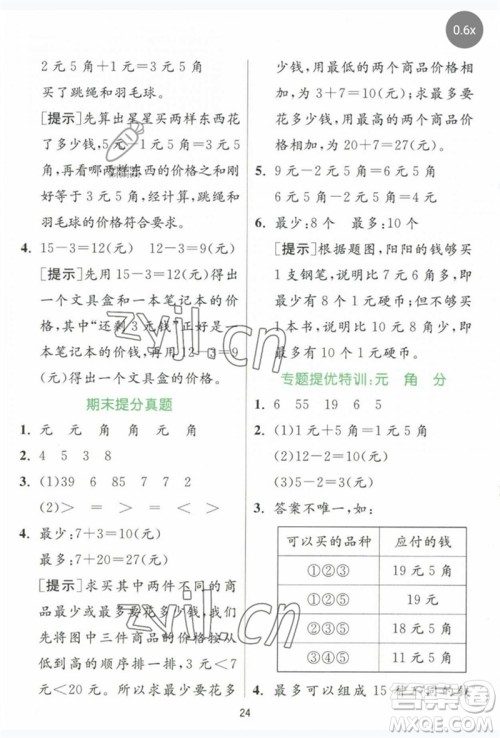 0.6x
2元5角+1元=3元5角
买了跳绳和羽毛球。
[提示]先算出星星买两样东西花
了多少钱,5元-1元5角=3元5角,
再看哪两样东西的价格之和正
好等于3元5角,经计算,跳绳和
羽毛球的价格符合要求。
4. 15-3=12(元) 12-3=9(元)
[提示]先用15-3=12(元)得出
一个文具盒和一本笔记本的价
格,其中“还剩3元钱”正好是一
本笔记本的价钱,再用12-3=9
(元)得出一个文具盒的价格。
期末提分真题
1. 元 元 角 角 元 角
2. 4 5 3 8
3. (1)39 6 85 7 7 2
(2)> = > < >
4. 最少:7+3=10(元)
最多:7+20=27(元)
[提示]求买其中两件不同的商
品最少或最多要花多少钱,我们
先将图中三件商品的价格按从
低到高的顺序排一排,3元<7
元<20元;求最少要花多
少钱,用最低的两个商品价格相
加,为3+7=10(元);求最多要
花多少钱,用最高的两个商品价
格相加,为20+7=27(元)。
5. 9元5角-2元8角=6元7角
6元5角-2元5角=4元
6. 最少:8个 最多:10个
[提示]根据题图,阳阳的钱够买
专题提优特训:元 角 分
1. 6 55 19 5
2. (1)2元+4元5角=6元5角
(2)12-2=10(元)
(3)5-2=3(元)
3. 答案不唯一。
可以买的品种 应付的钱
①②③ 19元5角
①②⑤ 19元
②④⑤ 8元5角
③④⑤ 11元5角
24
zyjl.cn
zyjl.cn
MXQE.COM